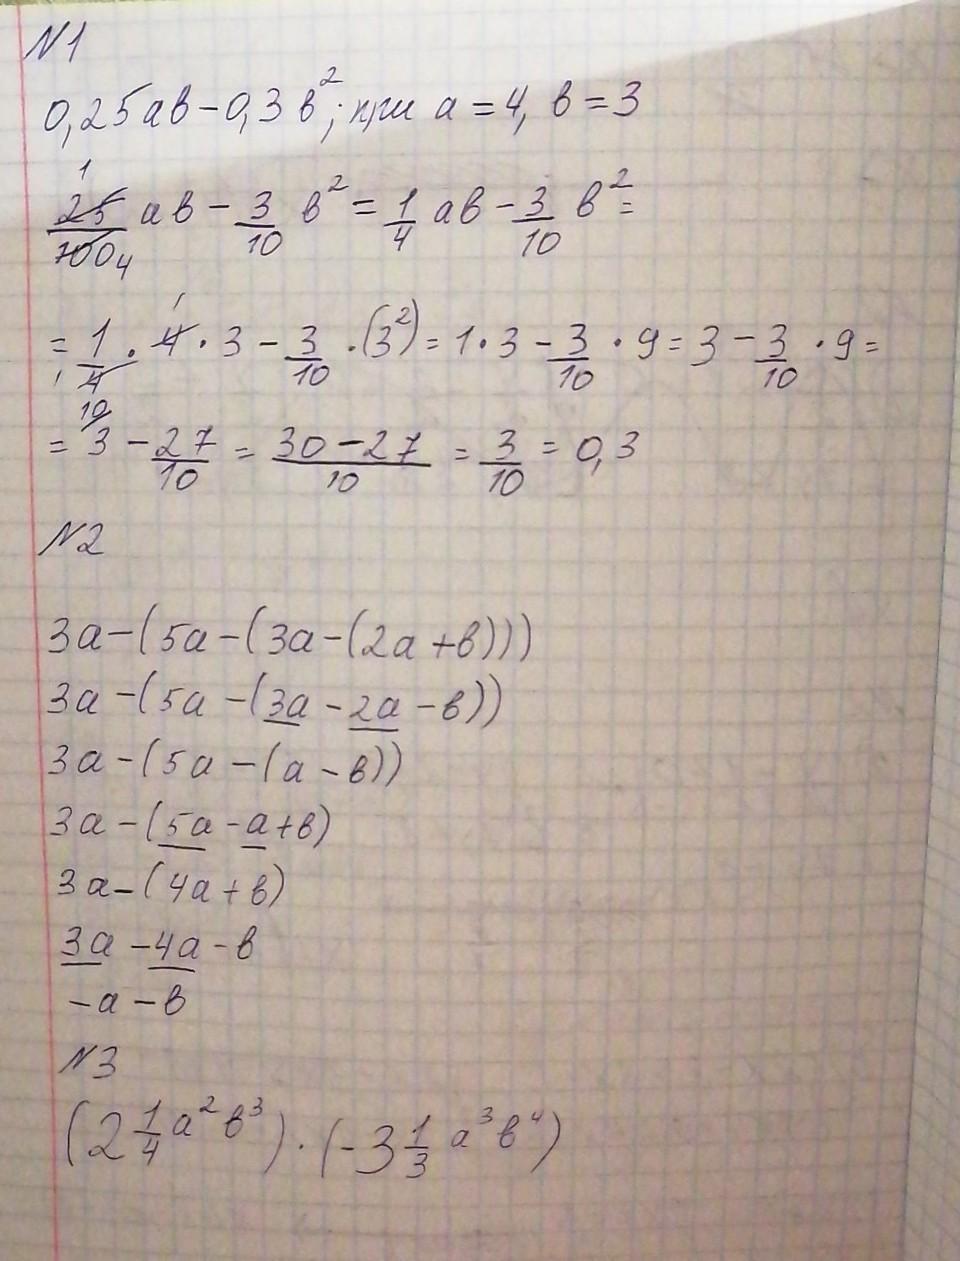 №1
0,25ав-0,3в²; при а=4, в=3
25/100 ав - 3/10 в² = 1/4 ав - 3/10 в² =
= 1/4 · 4 · 3 - 3/10 · (3²) = 1·3 - 3/10 · 9 = 3 - 3/10 · 9 =
= 3 - 27/10 = 30-27/10 = 3/10 = 0,3
№2
3а-(5а-(3а-(2а+в)))
3а-(5а-(3а-2а-в))
3а-(5а-(а-в))
3а-(5а-а+в)
3а-(4а+в)
3а-4а-в
-а-в
№3
(2 1/4 а²в³)·(-3 1/3 а³в⁴)